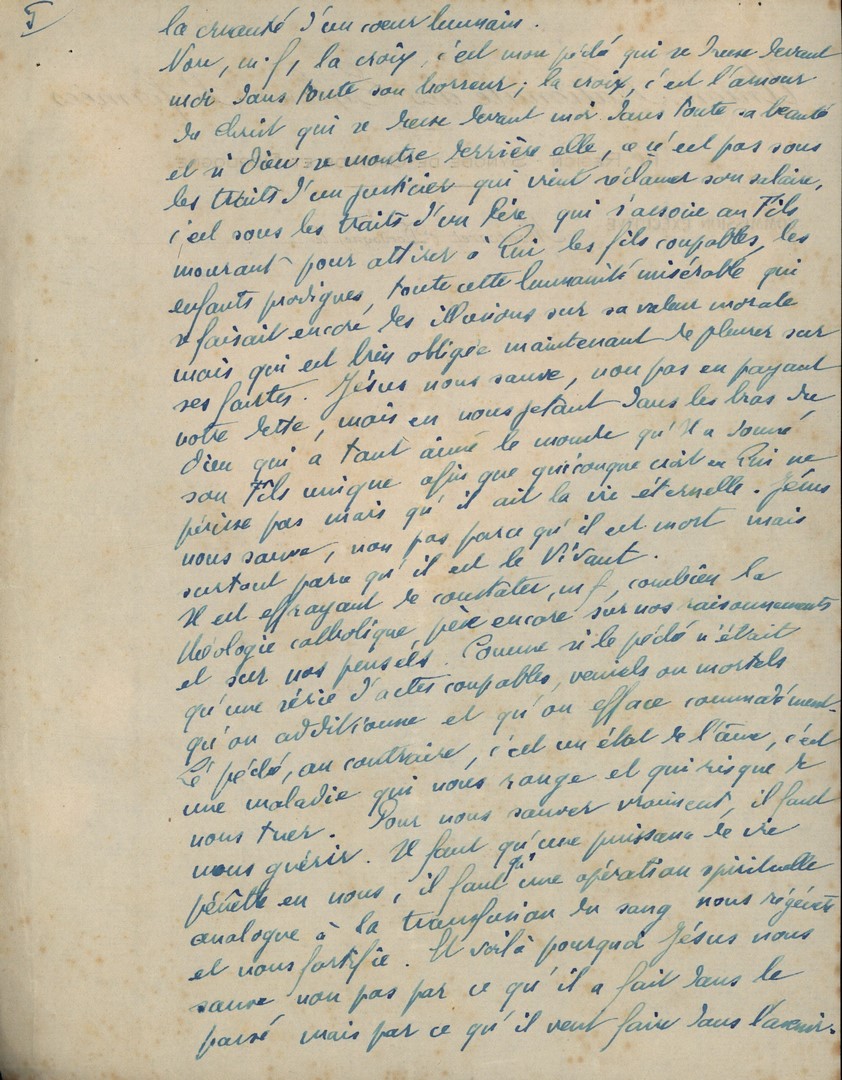 5
la cruauté d'un coeur humain.
Non, m.f, la croix, c'est mon péché qui se dresse devant
moi dans toute son horreur; la croix, c'est l'amour
du Christ qui se dresse devant moi dans toute sa beauté
et si Dieu se montre derrière elle, ce n'est pas sous
les traits d'un justicier qui vient réclamer son salaire,
c'est sous les traits d'un Père qui s'associe au Fils
mourant pour attirer à Lui les fils coupables, les
enfants prodigues, toute cette humanité misérable qui
se faisait encore des illusions sur sa valeur morale
mais qui est bien obligée maintenant de pleurer sur
ses fautes. Jésus nous sauve, non pas en payant
notre dette, mais en nous jetant dans les bras du
Dieu qui a tant aimé le monde qu'Il a donné
son Fils unique afin que quiconque croit en Lui ne
périsse pas mais qu'il ait la vie éternelle. Jésus
nous sauve, non pas parce qu'il est mort mais
surtout parce qu'il est le Vivant.
Il est effrayant de constater, m.f, combien la
théologie catholique, pèse encore sur nos raisonnements
et sur nos pensées. Comme si le péché n'était
qu'une série d'actes coupables, véniels ou mortels
qu'on additionne et qu'on efface commodément.
Le péché, au contraire, c'est un état de l'âme, c'est
une maladie qui nous ronge et qui risque de
nous tuer. Pour nous sauver vraiment, il faut
nous guérir. Il faut qu'une puissance de vie
pénètre en nous, il faut qu'une opération spirituelle
analogue à la transfusion du sang nous régénère
et nous fortifie. Et voilà pourquoi Jésus nous
sauve non pas par ce qu'il a fait dans le
passé mais par ce qu'il veut faire dans l'avenir.